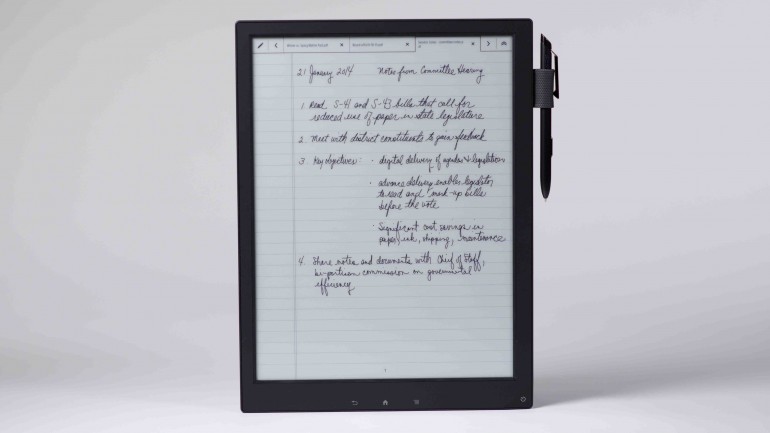 21 January 2014 Notes from Committee Hearing
1. Read S-41 and S-43 bills that call for
reduced use of paper in state legislature
2. Meet with district constituents to gain feedback
3. Key objectives: • digital delivery of agendas & legislation
• advance delivery enables legislator
to read and mark-up bills
before the vote
• Significant cost savings in
paper, ink, shipping, maintenance
4. Share notes and documents with Chief of Staff,
bi-partisan commission on governmental
efficiency
1